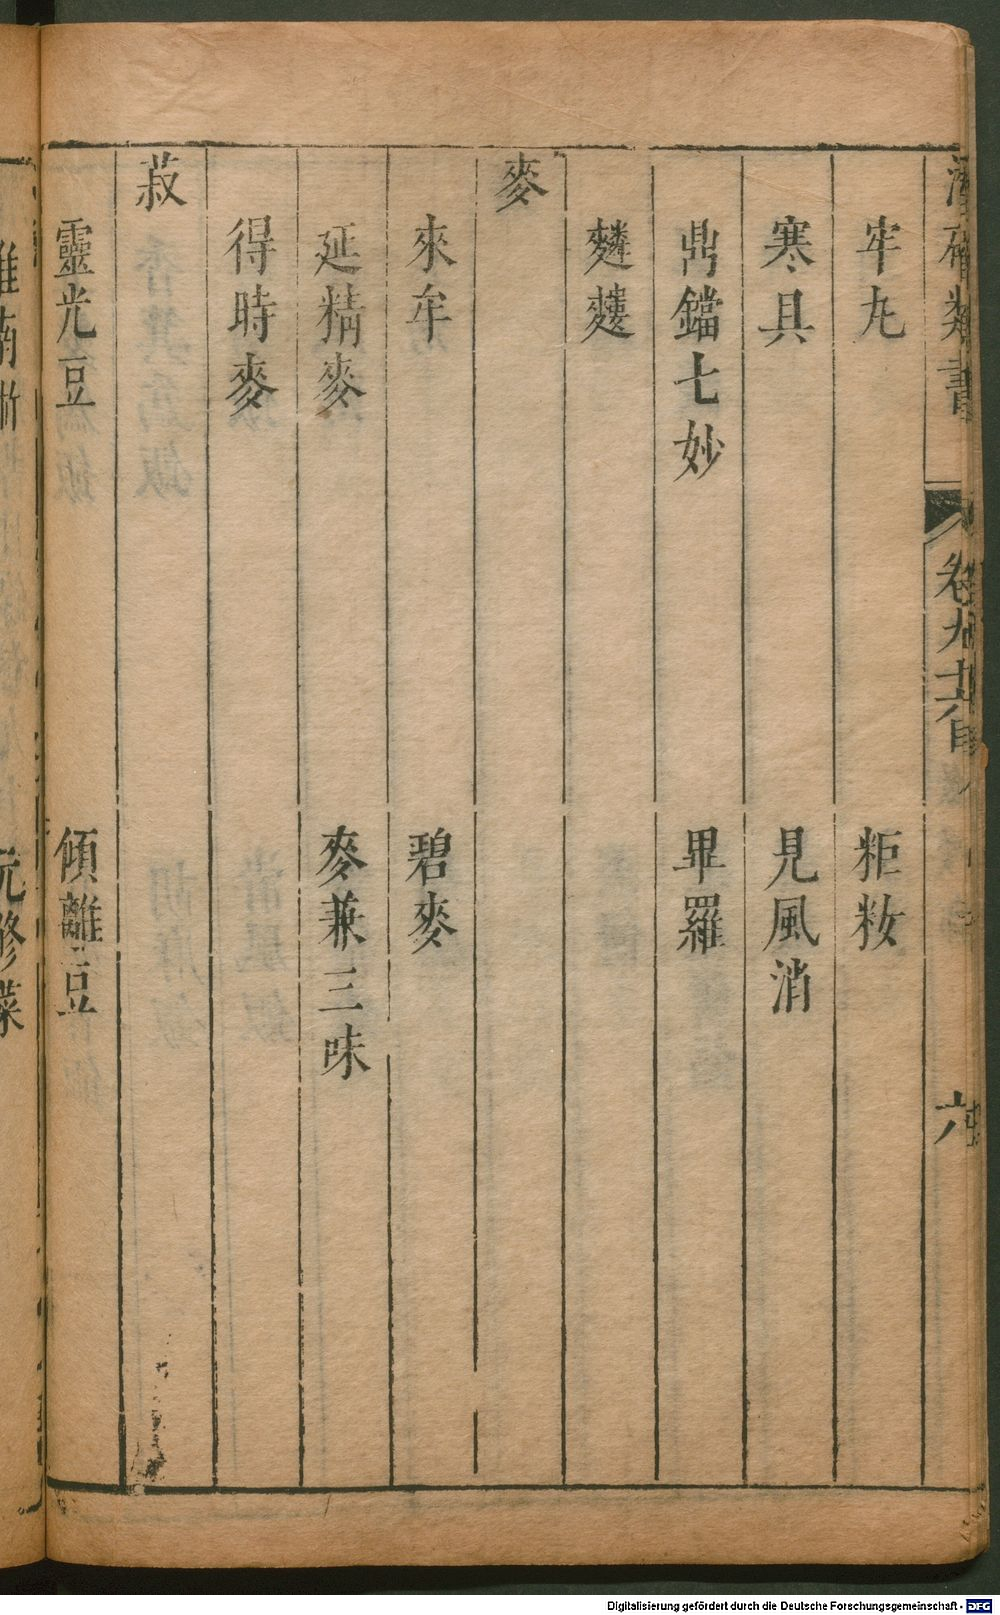 潛確類書
卷九十六目
六
牢丸
粔籹
寒具
見風消
鼎鐺七妙
畢羅
麥
來牟
碧麥
延精麥
麥兼三味
得時麥
菽
靈光豆
傾離豆
元修菜
Digitalisierung gefördert durch die Deutsche Forschungsgemeinschaft - DFG